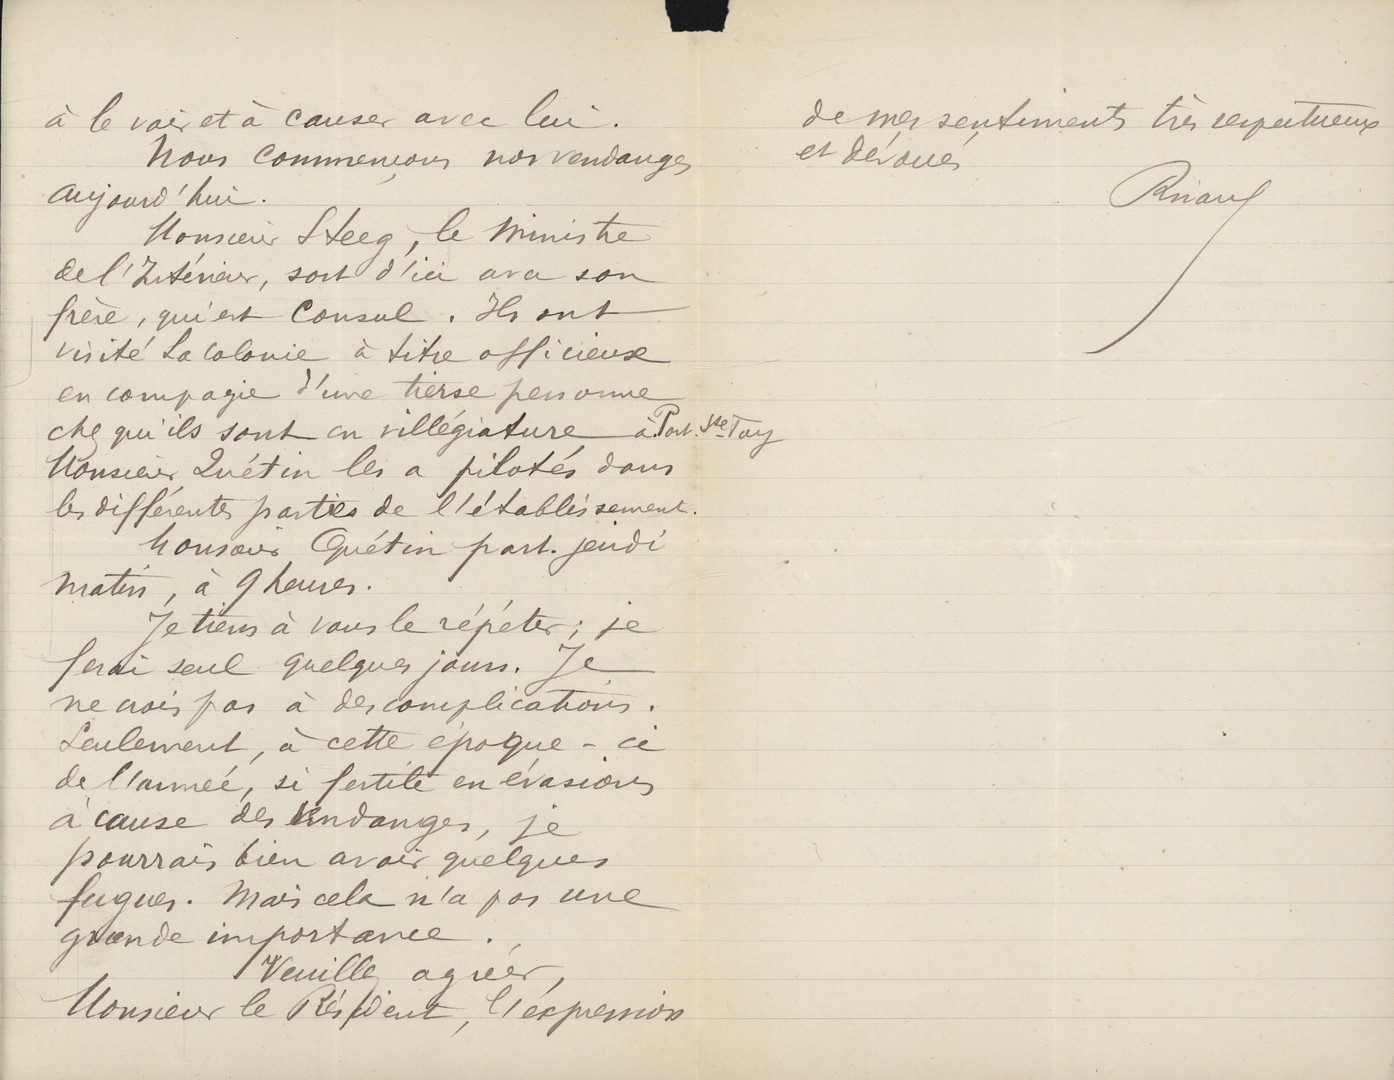 à le voir et à causer avec lui.
Nous commençons nos vendanges
aujourd'hui.
Monsieur Steeg, le Ministre
de l'Intérieur, sort d'ici avec son
frère, qui est Consul. Ils ont
visité la colonie à titre officieux
en compagie d'une tierse personne
chez qu'ils sont en villégiature à Port. Ste-Foy
Monsieur Quétin les a pilotés dans
les différentes parties de l'établissement.
Monsieur Quétin part. jeudi
matin, à 9 heures.
Je tiens à vous le répéter; je
serai seul quelques jours. Je
ne crois pas à des complications.
Seulement, à cette époque-ci
de l'année, si fertile en évasions
à cause des vendanges, je
pourrais bien avoir quelques
fugues. Mais cela n'a pas une
grande importance.
Veuillez agréer,
Monsieur le Président, l'expression
de mes sentiments très respectueux
et dévoués